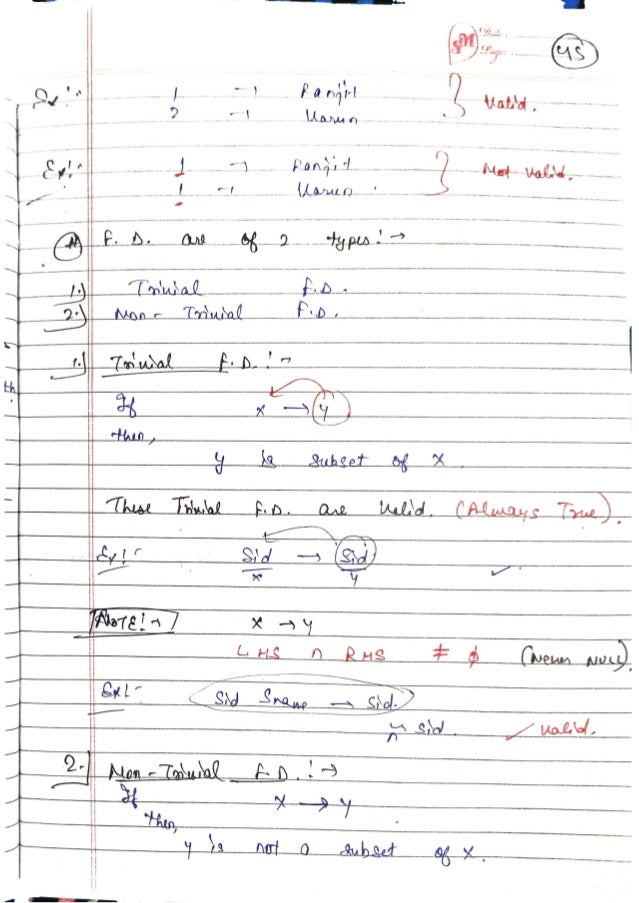 SM Date:
Page:
45
Ex:- 1 → Ranjit
2 → Varun } Valid.
Ex:- 1 → Ranjit
1 → Varun. } Not valid.
# F. D. are of 2 types:→
1.) Trivial F.D.
2.) Non- Trivial F.D.
1.) Trivial F.D.:→
If x → y
then,
y is subset of x.
th.
These Trivial F.D. are Valid. (Always True).
Ex:- Sid → Sid ✓
x y
NOTE:→ x → y
LHS ∩ RHS ≠ ϕ (Never NULL).
Ex:- Sid Sname → Sid.
∩ sid. ✓ valid.
2.) Non-Trivial F.D.:→
If x → y
then,
y is not a subset of x.